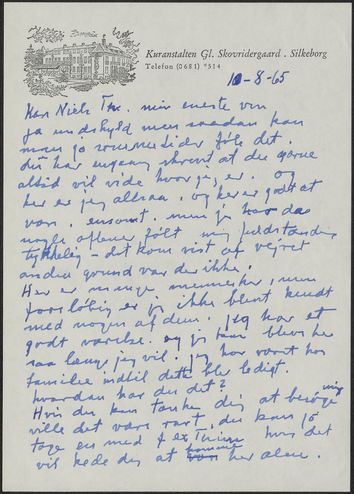 Kuranstalten Gl. Skovridergaard . Silkeborg
Telefon (0681) *514
10-8-65
Kære Niels min eneste ven
ja undskyld men saadan kan
man jo sommetider føle det.
du har engang skrevet at du gerne
altid vil vide hvor jeg er. og
her er jeg altsaa. og her er godt at
være. ensomt. men jeg har da
nogle aftener følt mig fuldstændig
– det kom vist af vejret
anden grund var der ikke.
Her er mange mennesker, men
foreløbig er jeg ikke blevet kendt
med nogen af dem. Jeg har et
godt værelse. og jeg kan blive her
saa længe jeg vil. Jeg har været hos
familie indtil dette blev ledigt.
hvordan har du det?
Hvis du kan tænke dig at besøge mig
ville det være rart, du kan jo
tage en med f ex hvis det
vil kede dig at komme her alene.